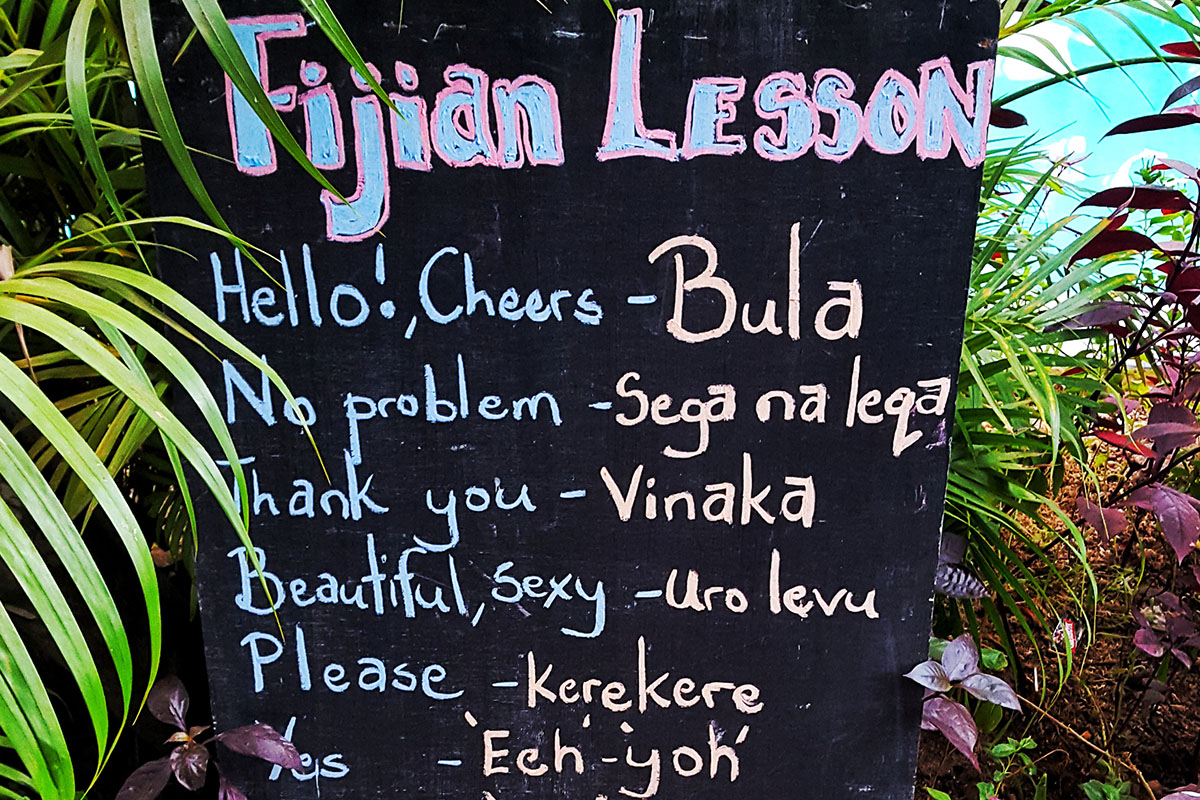 Fijian LESSON
Hello!, Cheers - Bula
No problem - Sega na leqa
Thank you - Vinaka
Beautiful, sexy - Uro levu
Please - kerekere
Yes - 'Eeh-yoh'